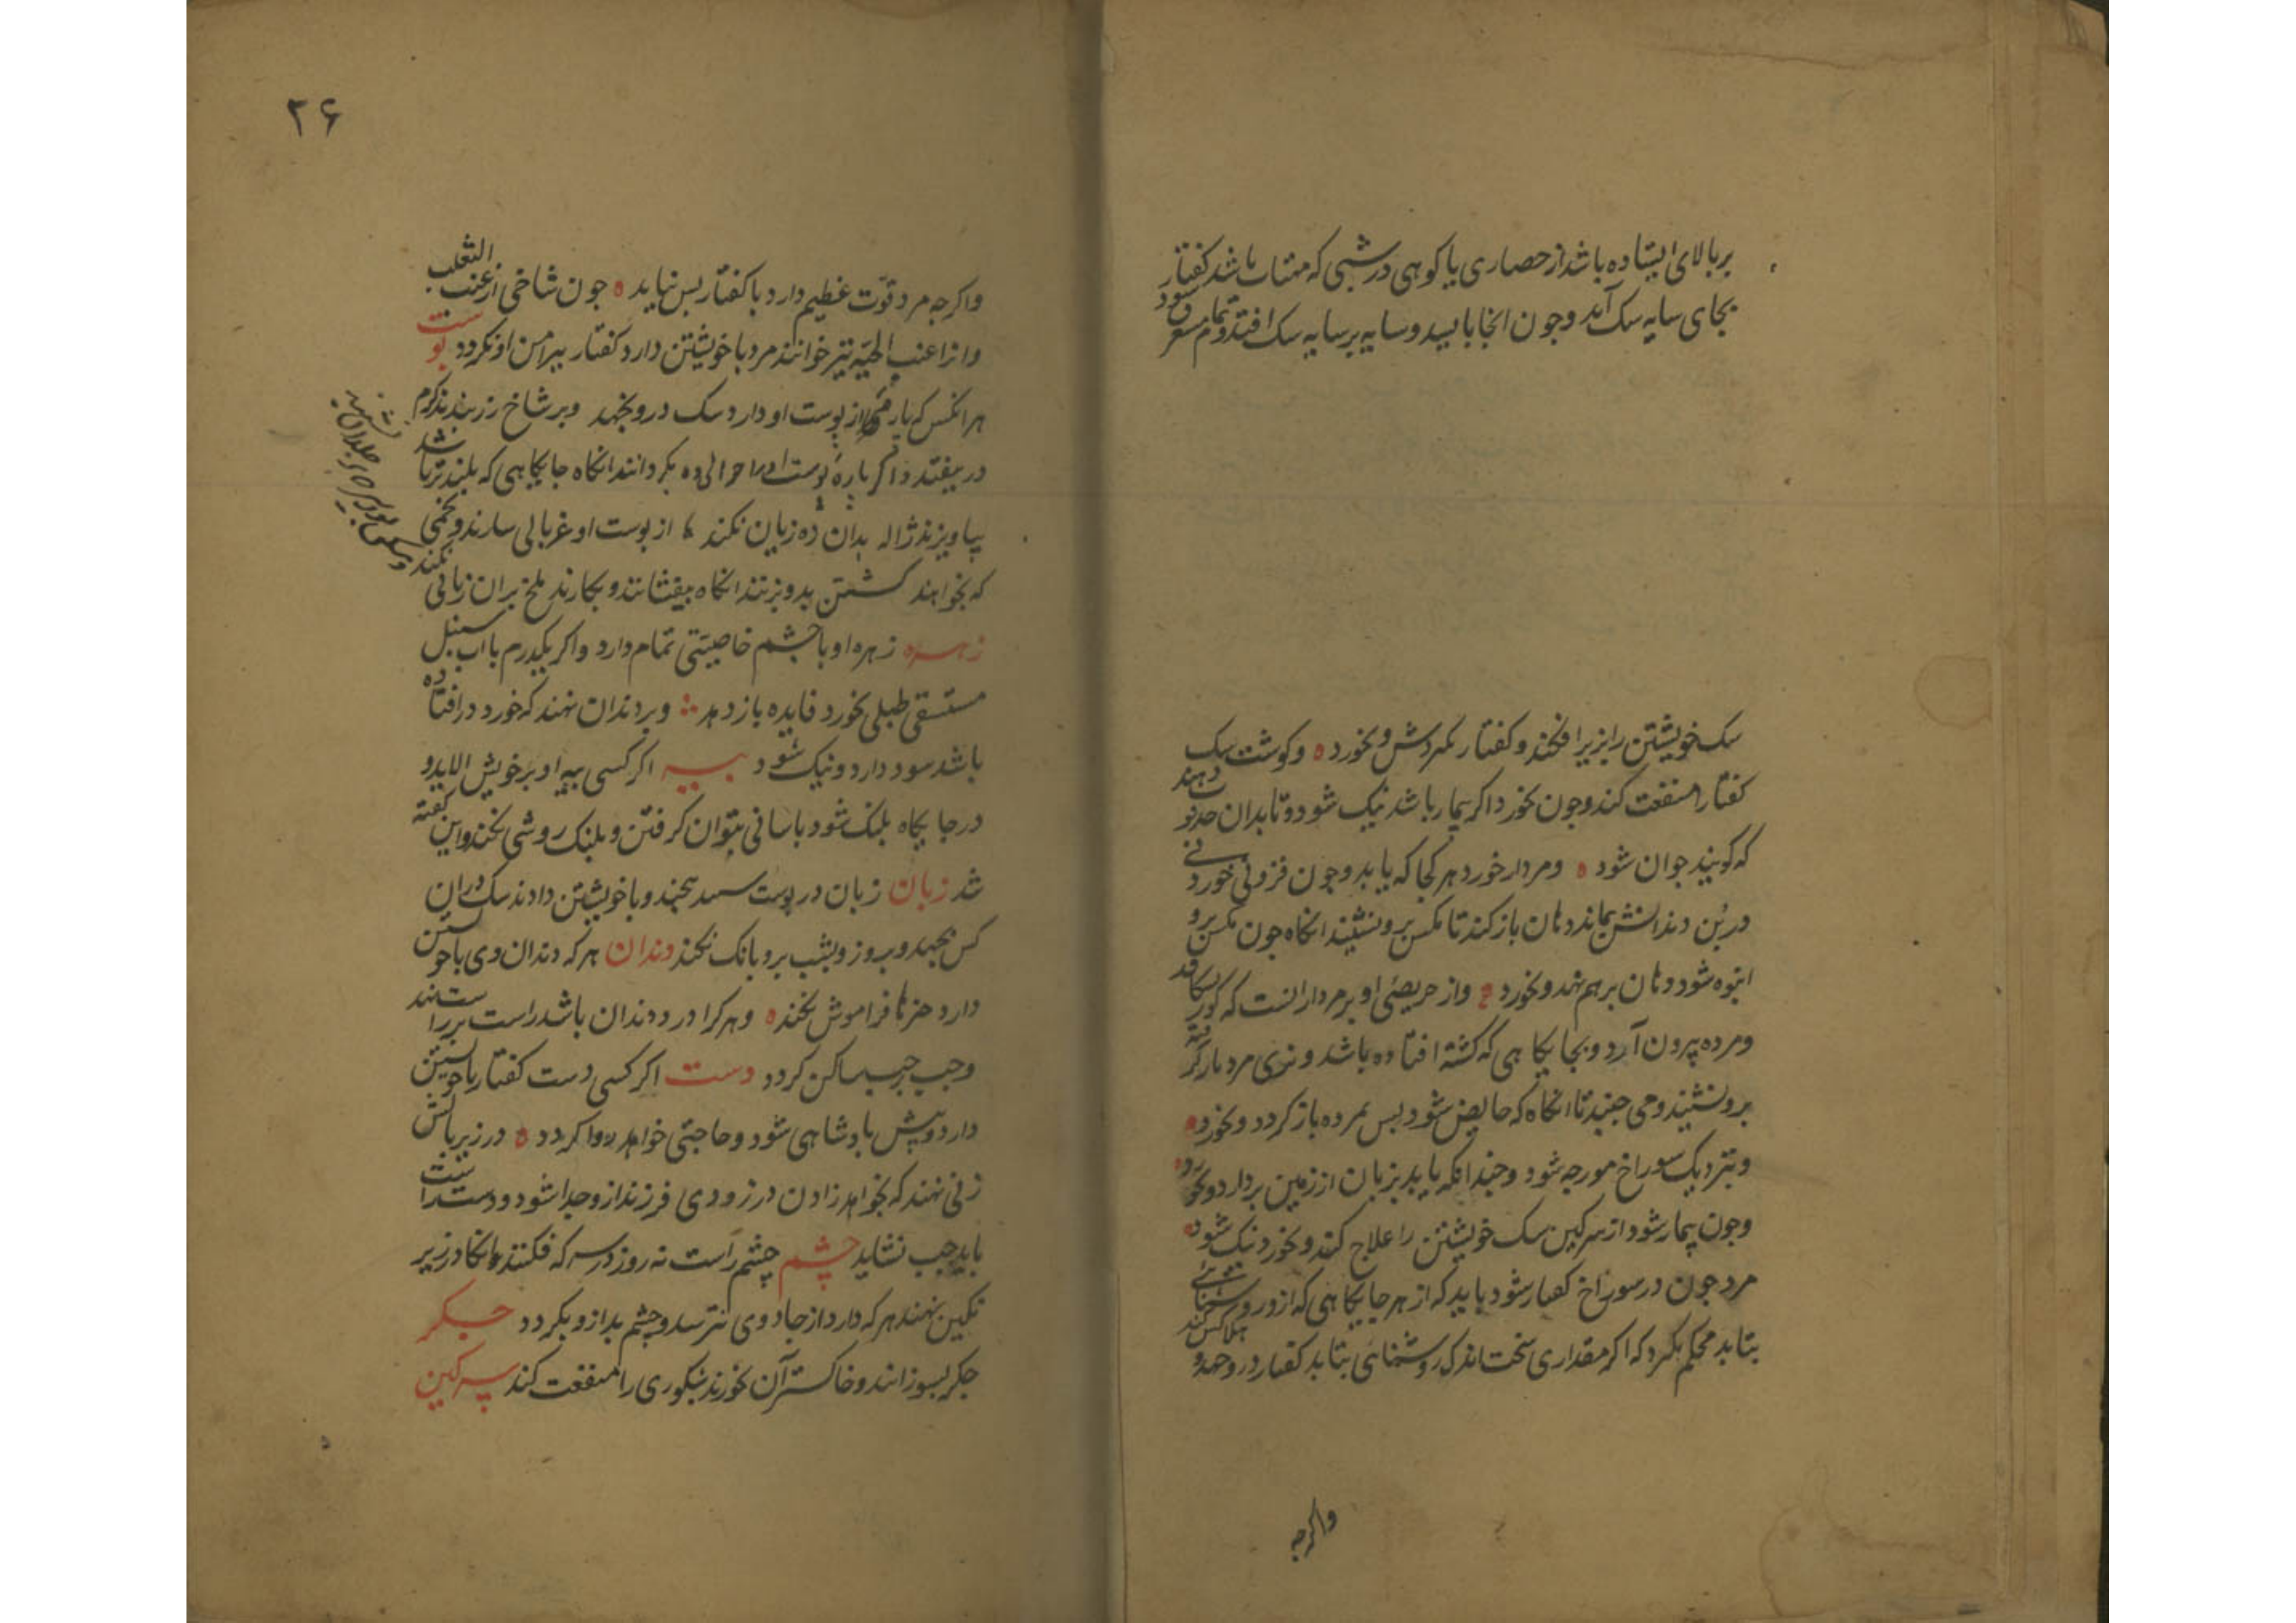 بر بالای ایستاده باشد از حصاری یا کوهی در شبی که مهتاب باشد کفتار
بجای سایه سک آید و جون انجا بایسد و سایه بر سایه سک افتد و تمام شود
سک خویشتن را بزیر افکند و کفتار بمردش و بخورد ه و کوشت سک
کفتار را منفعت کند و جون بخورد اکر بیمار باشد نیک شود و تا بدان حد دهند
که کویند جوان شود ه و مردار خورد هر کجا که یابد و جون فزونی خورد
در بُن دندانش بماند دهان باز کند تا مکس برو نشیند انکاه جون مکس برو
انبوه شود دهان بر هم نهد و بخورد و از حریصئی او بر مردار انست که کور بشکافد
و مرده بیرون آرد و بجایکاهی که کشته افتاده باشد و نری مرد بار کرفته
برو نشیند و می جنبد تا انکاه که حایض شود بس بمرده باز کردد و بخورد ه
و بنزدیک سوراخ مورجه شود و جندانکه یابد بزبان از زمین بردارد و بخورد ه
و جون بیمار شود از سرکین سک خویشتن را علاج کند و بخورد نیک شود ه
مرد جون در سوراخ کفتار شود باید که از هر جایکاهی که ازو روشنائی
بتابد محکم بکیرد که اکر مقداری سخت اندک روشنائی بتابد کفتار درو جهد و هلاکش کند
واکرجه
۲۶
واکرجه مرد قوّت عظیم دارد با کفتار بس نیاید ه جون شاخی از عنب الثعلب
و انرا عنب الحیّه نیز خوانند مرد با خویشتن دارد کفتار بیرامن او نکردد بوست
هر انکس که باره از بوست او دارد سک درو نجهد و بر شاخ رز بندند کرم
در نیفتد و اکر باره بوست او را حوالی ده بکردانند انکاه جایکاهی که بلندتر باشد
بیاویزند ژاله بدان ده زیان نکند از بوست او غربالی سازند و تخمی
که بخواهند کشتن بدو بزنند انکاه بیفشانند و بکارند ملخ بران زیانی نکند
زهره زهره او با جشم خاصیتی تمام دارد و اکر یکدرم با اب سنبل
مستسقی طبلی بخورد فایده باز دهد و بر دندان نهند که خورد در افتاده
باشد سود دارد و نیک شود بیه اکر کسی بیه او بر خویش الاید و
در جایکاه بلنک شود باسانی بتوان کرفتن و بلنک روشی نکند و این کفته
شد زبان زبان در بوست بیجند و با خویشتن دارند سک دران
کس نجهد و بروز و بشب برو بانک نکند دندان هر که دندان وی با خویشتن
دارد هنرها فراموش نکند ه و هرکرا درد دندان باشد راست بر راست نهند
و جب بر جب ساکن کردد دست اکر کسی دست کفتار با خویشتن
دارد و بیش بادشاهی شود و حاجتی خواهد روا کردد ه در زیر بالش
زنی نهند که بخواهد زادن در زودی فرزند ازو جدا شود و دست راست
باید جب نشاید چشم چشم راست نه روز در سرکه فکنند انکاه در زیر
نکین نهند هرکه دارد از جادوی نترسد و چشم بد ازو بکردد جکر
جکر بسوزانند و خاکستر آن بخورند شبکوری را منفعت کند سرکین